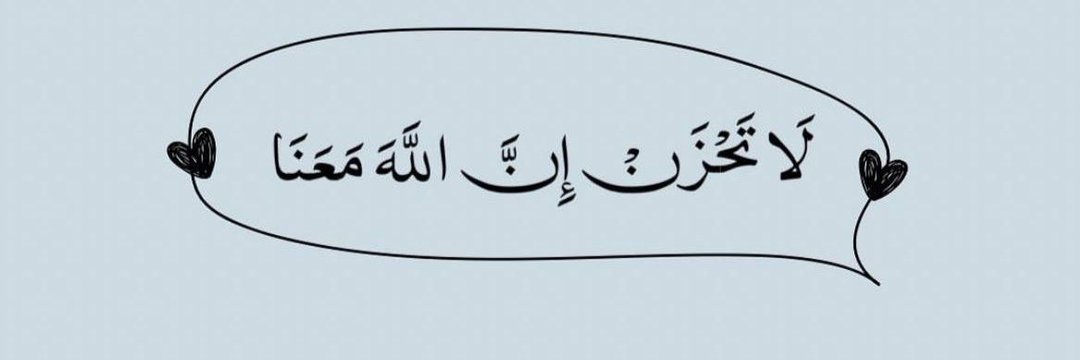 لَا تَحْزَنْ إِنَّ اللَّهَ مَعَنَا